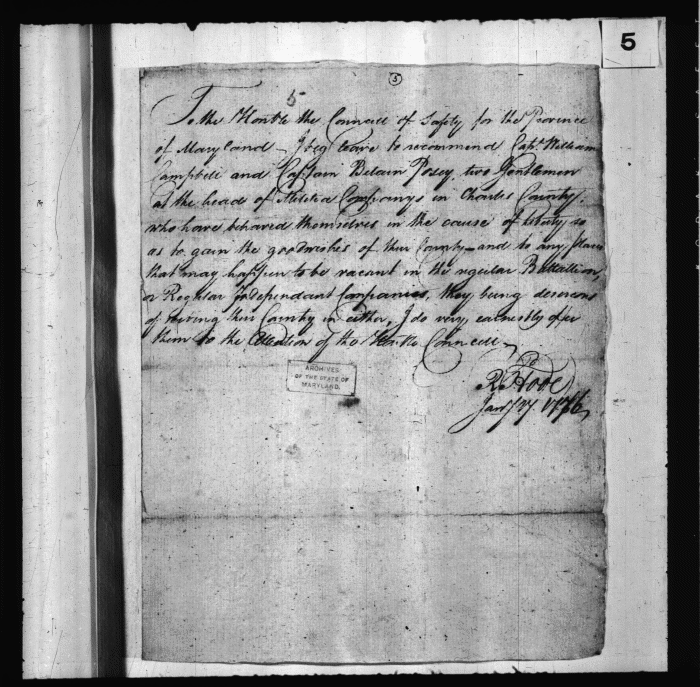 5
5
5
To the Hon:ble the Councell of Safety for the Province
of Maryland - I beg leave to recommend Capt. William
Campbell and Captain Belain Posey, two Gentlemen
at the head of Militia Companys in Charles County,
who have behaved themselves in the cause of liberty so
as to gain the goodwishes of their County - and to any places
that may happen to be vacant in the regular Battallion,
or Regular Independant Companies, they being desirous
of serving their Country in either, I do very earnestly offer
them to the Attention of the Hon:ble Councell -
R Hooe
Jany 27. 1776,
ARCHIVES
OF THE STATE OF
MARYLAND.